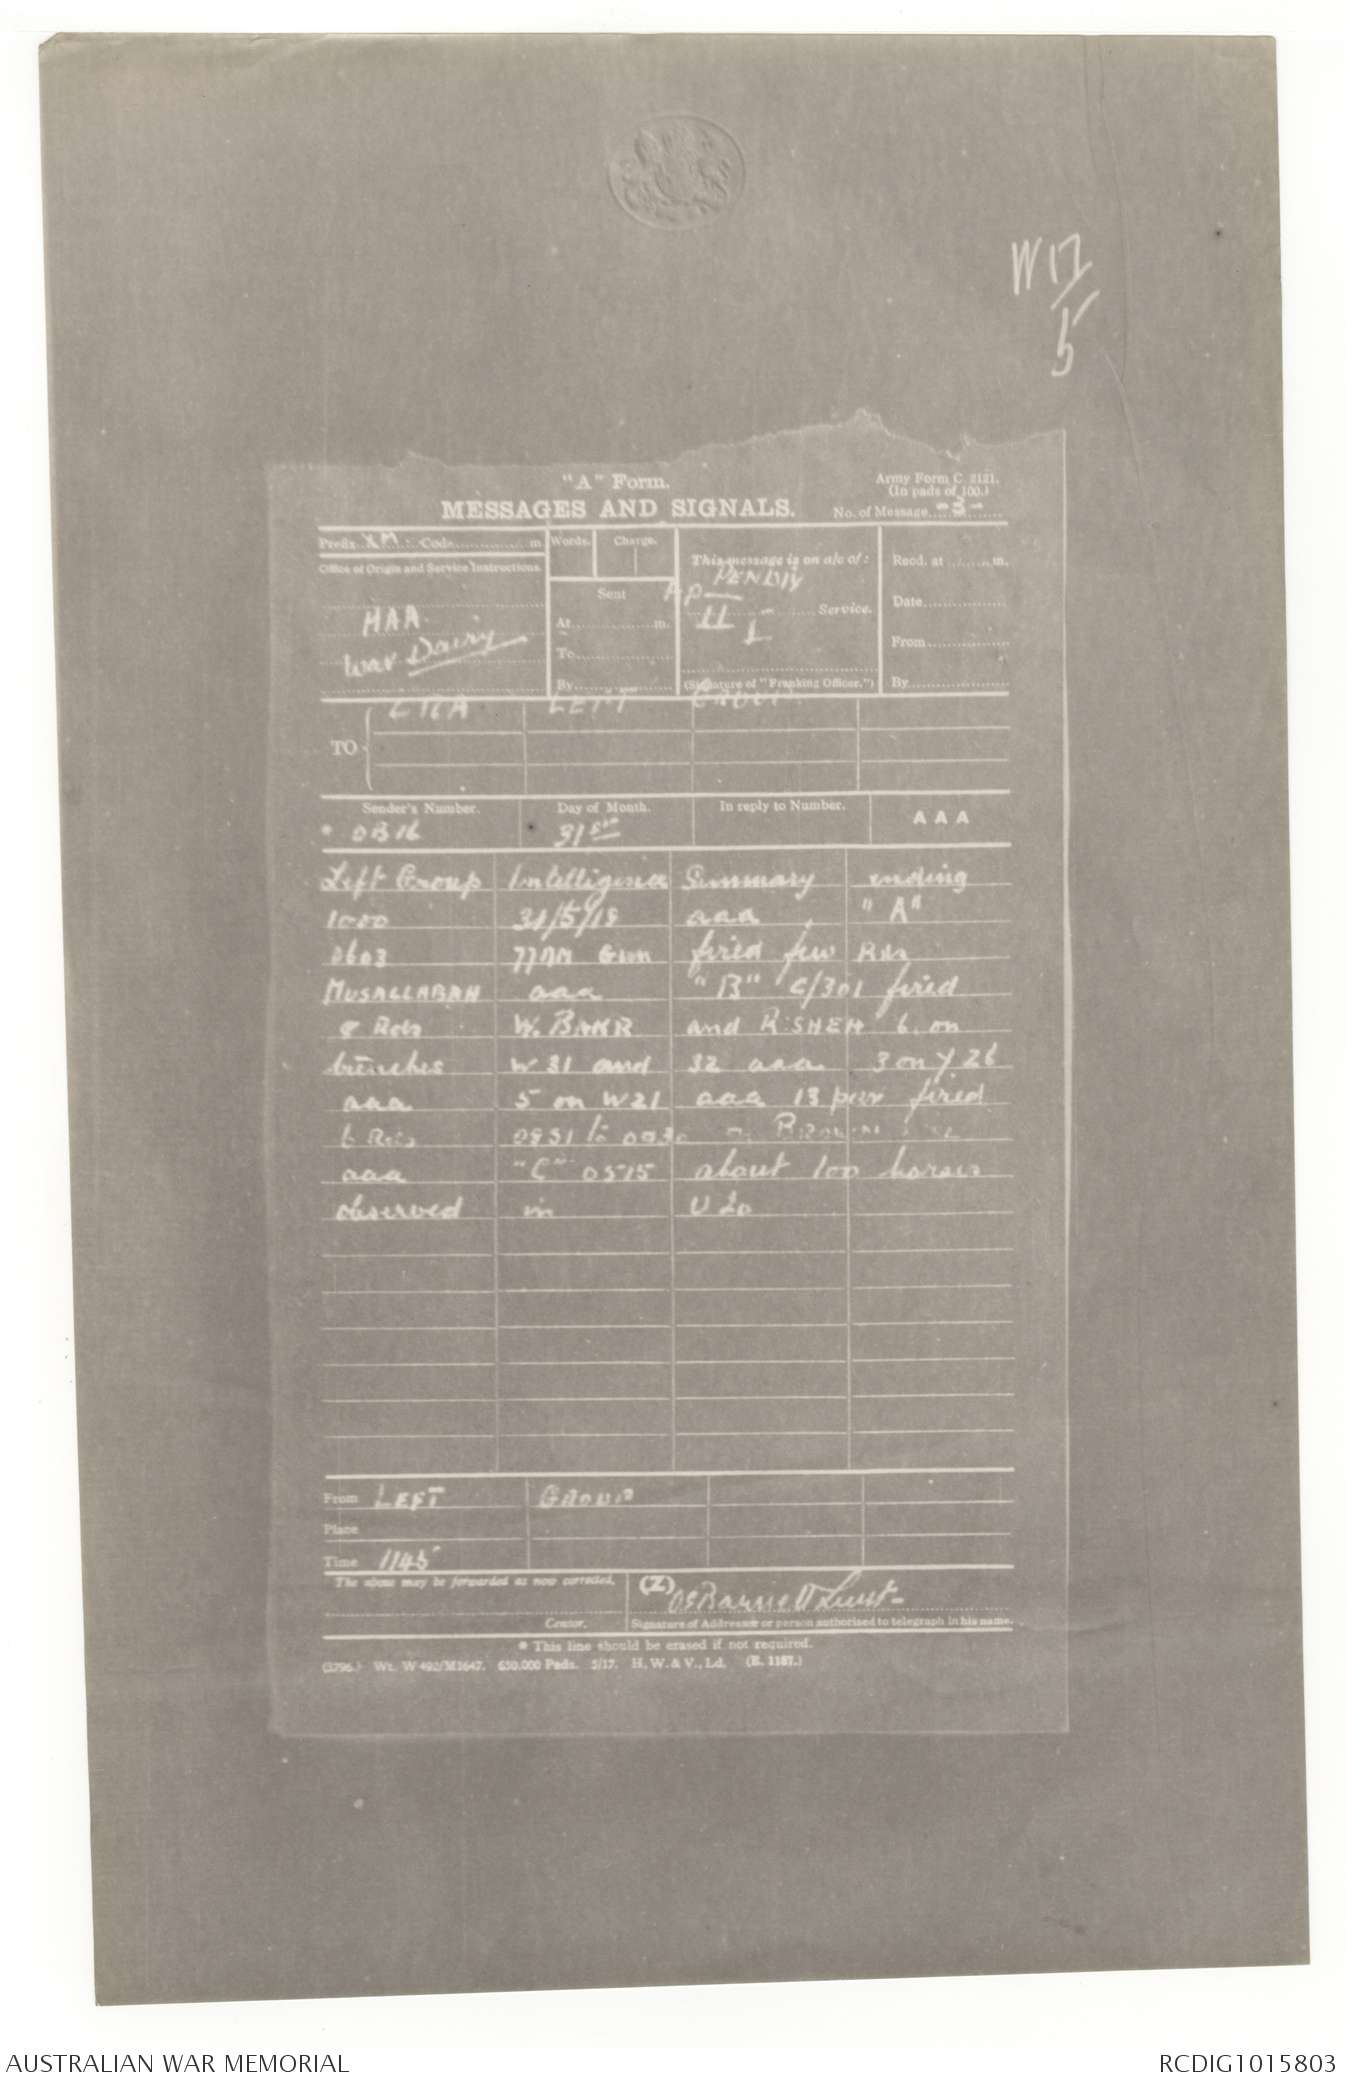 W 17/5
"A" Form.
Army Form C 2121.
(In pads of 100.)
MESSAGES AND SIGNALS.
No. of Message -3-
Prefix XM Code m
Words. Charge.
This message is on a/c of:
Recd. at m.
Office of Origin and Service Instructions.
Sent
APPENDIX
II
Service.
Date
HAA
At m.
From
War Dairy
To
By
(Signature of "Franking Officer.")
By
TO
LEFT GROUP
Sender's Number.
Day of Month.
In reply to Number.
AAA
* OB16
31st
Left Group Intelligence Summary ending
1000 31/5/18 aaa "A"
0603 77MM Gun fired few Rds
MUSALLABAH aaa "B" C/301 fired
8 Rds W. BAKR and R:SHEH 6 on
trenches W 31 and 32 aaa 3 on Y 26
aaa 5 on W21 aaa 13 pdr fired
6 Rds 0831 to
aaa "C" 0515 about 100 horses
observed in
From LEFT GROUP
Place
Time 1145
The above may be forwarded as now corrected.
(Z)
Lieut
Censor.
Signature of Addressee or person authorised to telegraph in his name.
* This line should be erased if not required.
(3796.) Wt. W 492/M1647. 650,000 Pads. 5/17. H. W. & V., Ld. (E. 1187.)
AUSTRALIAN WAR MEMORIAL
RCDIG1015803